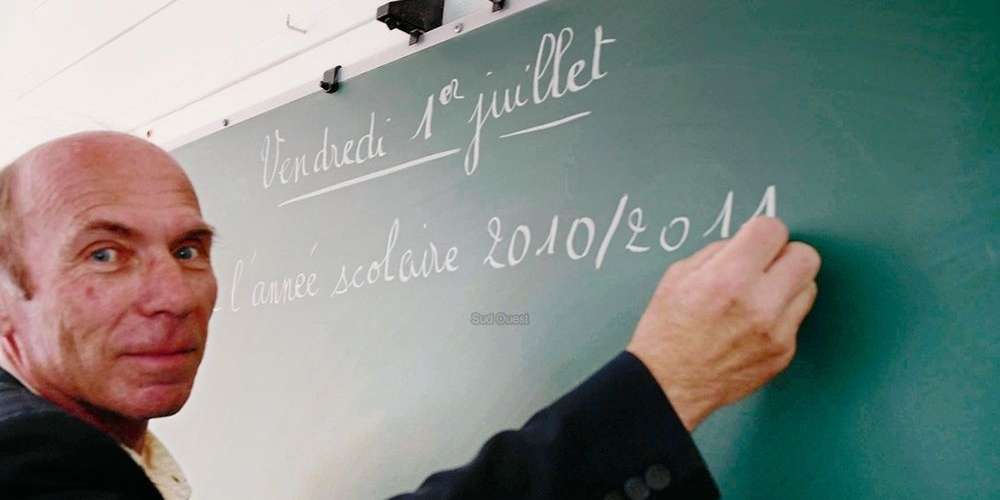 Vendredi 1er juillet
l'année scolaire 2010/2011
Sud Ouest